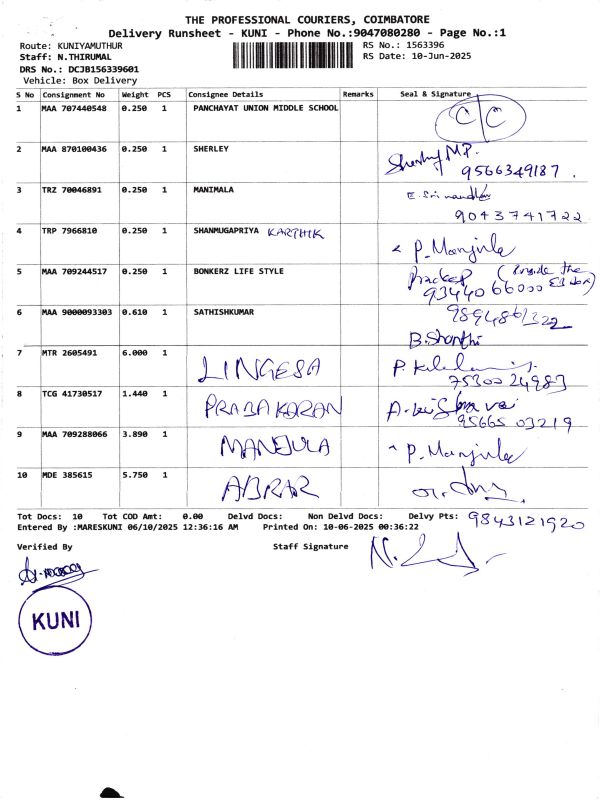 THE PROFESSIONAL COURIERS, COIMBATORE
Delivery Runsheet - KUNI - Phone No.:9047080280 - Page No.:1
Route: KUNIYAMUTHUR RS No.: 1563396
Staff: N.THIRUMAL RS Date: 10-Jun-2025
DRS No.: DCJB156339601
Vehicle: Box Delivery
S No Consignment No Weight PCS Consignee Details Remarks Seal & Signature
1 MAA 707440548 0.250 1 PANCHAYAT UNION MIDDLE SCHOOL C/C
2 MAA 870100436 0.250 1 SHERLEY Sherley M.P.
9566349187
3 TRZ 70046891 0.250 1 MANIMALA
9043741722
4 TRP 7966810 0.250 1 SHANMUGAPRIYA KARTHIK P. Manjula
5 MAA 709244517 0.250 1 BONKERZ LIFE STYLE (Inside the
9344066000
6 MAA 9000093303 0.610 1 SATHISHKUMAR
B. Shanthi
7 MTR 2605491 6.000 1 LINGESA
7530024983
8 TCG 41730517 1.440 1 PRABAKARAN
95665 03219
9 MAA 709288066 3.890 1 MANJULA P. Manjula
10 MDE 385615 5.750 1 ABRAR
Tot Docs: 10 Tot COD Amt: 0.00 Delvd Docs: Non Delvd Docs: Delvy Pts: 9843121920
Entered By :MARESKUNI 06/10/2025 12:36:16 AM Printed On: 10-06-2025 00:36:22
Verified By Staff Signature
KUNI